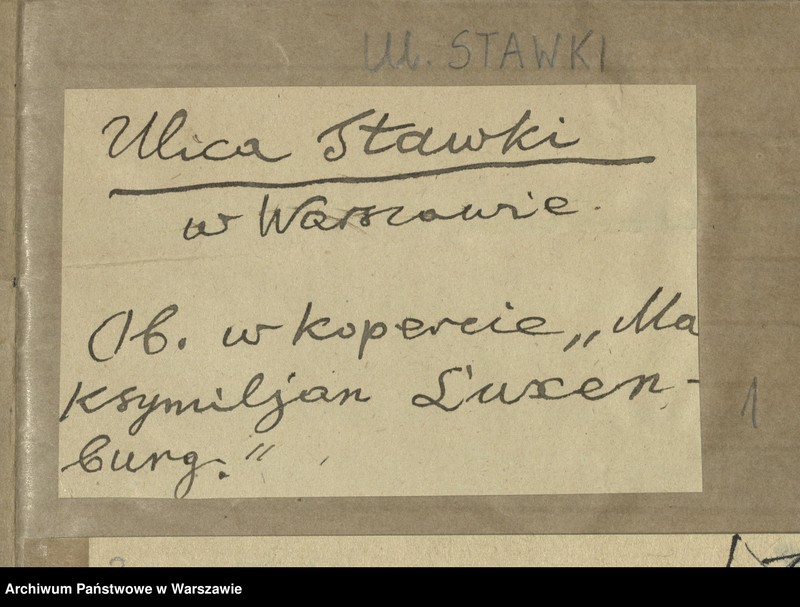 Ul. STAWKI
Ulica Stawki
w Warszawie.
Ob. w kopercie „Ma
ksymiljan Luxen-
burg."
1
Archiwum Państwowe w Warszawie